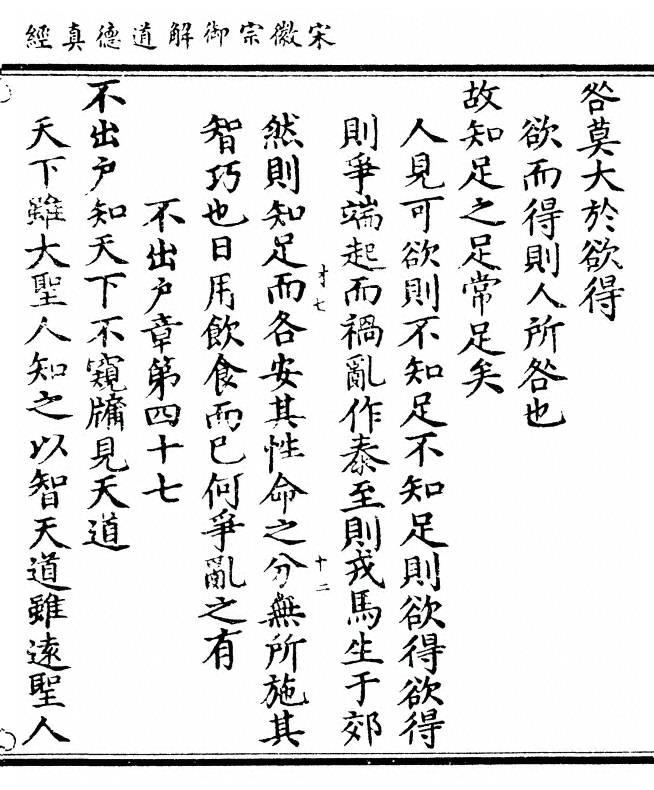 宋徽宗御解道德真經
咎莫大於欲得
欲而得則人所咎也
故知足之足常足矣
人見可欲則不知足不知足則欲得欲得
則爭端起而禍亂作泰至則戎馬生于郊
才七
十二
然則知足而各安其性命之分無所施其
智巧也日用飲食而已何爭亂之有
不出戶章第四十七
不出戶知天下不窺牖見天道
天下雖大聖人知之以智天道雖遠聖人